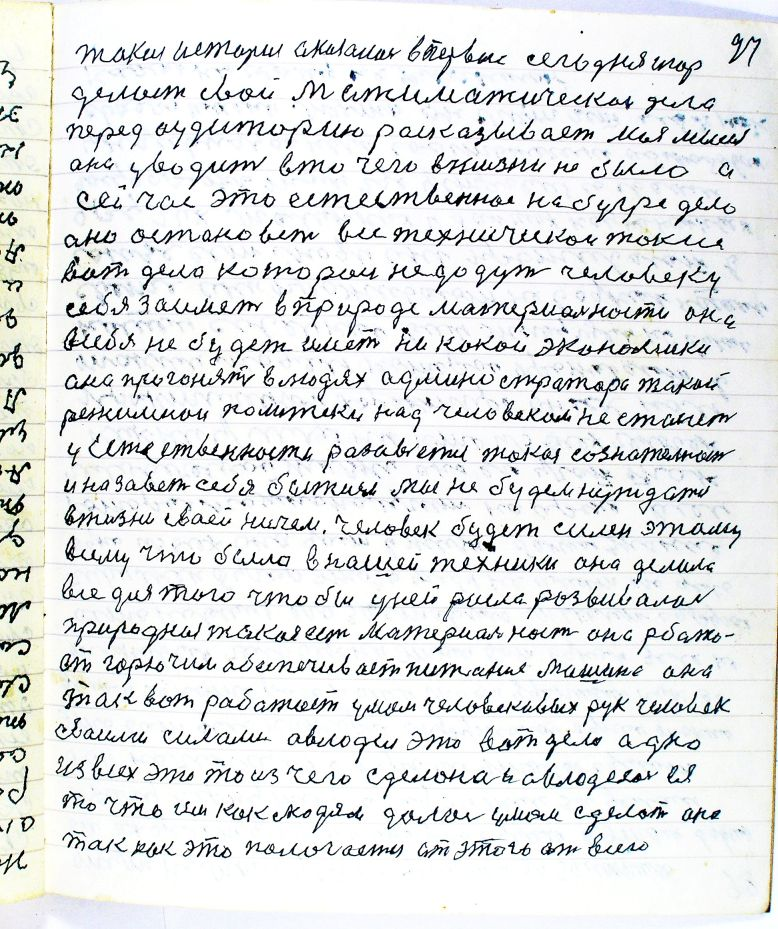 97
такая история сказалася впервые сегодня шар
делает свои математическая дела
перед аудиторию рассказывает моя мысля
она уводит в то чего в жизни не было а
сейчас это естественное на бугре дело
оно остановет все техническои
вот дело котораи не дадут человеку
себя займет в природе материалности она
в себя не будет имет ни какои экономики
она прогонят в людях администратора такой
режимнои политики над человеком не станет
у естественности разавется такая сознателност
и назавет себя бытием мы не будем нуждатся
в жизни своей ничем. человек будет силен этому
всему что было в нашей техники она делала
все для того что бы у ней росла розвивалас
природная такая ест материалност она рбата-
ат горючим обеспечивает питания машина она
так вот работает умом человековых рук человек
своими силами овлодел это вот дело одно
из всех это то из чего сделона и овлоделас вся
то что им как людям долги умом сделат она
так как это пологается от этого от всего